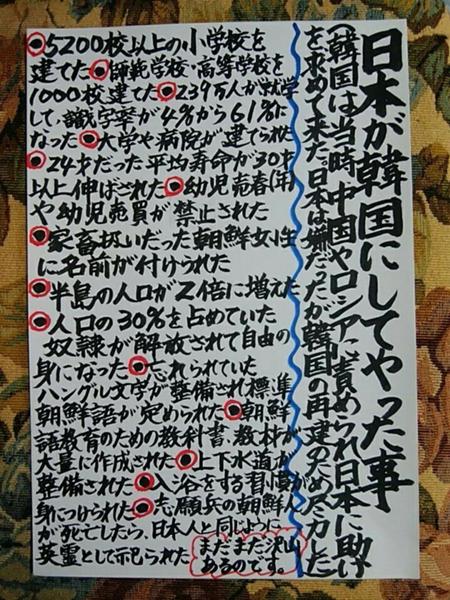 日本が韓国にしてやった事
(韓国は当時中国やロシアに責められ日本に助け
を求めて来た。日本は嫌だったが韓国の再建のため尽力した)
◉5200校以上の小学校を
建てた◉師範学校・高等学校を
1000校建てた◉239万人が就学
して、識字率が4%から61%に
なった◉大学や病院が建てられた
◉24才だった平均寿命が30才
以上伸ばされた◉幼児売春(年)
や幼児売買が禁止された
◉家畜扱いだった朝鮮女性
に名前が付けられた
◉半島の人口が2倍に増えた
◉人口の30%を占めていた
奴隷が解放されて自由の
身になった◉忘れられていた
ハングル文字が整備され標準
朝鮮語が定められた◉朝鮮
語教育のための教科書、教材が
大量に作成された◉上下水道が
整備された◉入浴をする習慣が
身につけられた◉志願兵の朝鮮人
が死亡したら、日本人と同じように
英霊として祀られた
まだまだ沢山
あるのです。